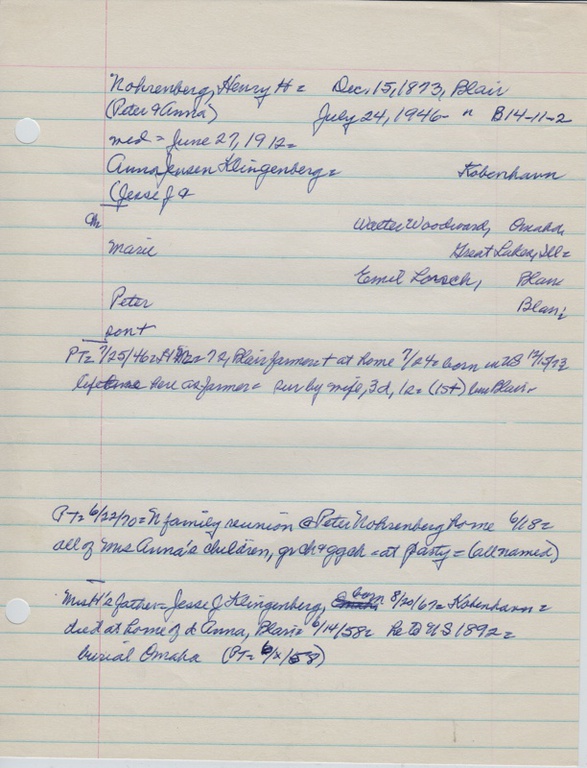 Nohrenberg, Henry H = Dec. 15, 1873, Blair
(Peter & Anna) July 24, 1946 - " B14-11-2
med = June 27, 1912 =
Anna Jensen Klingenberg = Kobenhavn
(Jesse J &
Ch
Walter Woodward, Omaha,
Marie Great Lakes, Ill =
Emil Lorsch, Blair
Peter Blair;
cont
PT = 7/25/46 = H = 72, Blair farmer + at home 7/24 = born in US 12/15/73
lifetime here as farmer = sur by wife, 3d, 1s = (1st) bur Blair -
PT = 6/22/70 = N family reunion @ Peter Nohrenberg home 6/18 =
all of Mrs Anna's children, gr ch & ggch = at party = (all named)
Mrs H's father = Jesse J Klingenberg, born 8/20/67 = Kobenhavn =
died at home of d Anna, Blair = 6/14/58 = he to US 1892 =
burial Omaha (PT = 6/x/58)